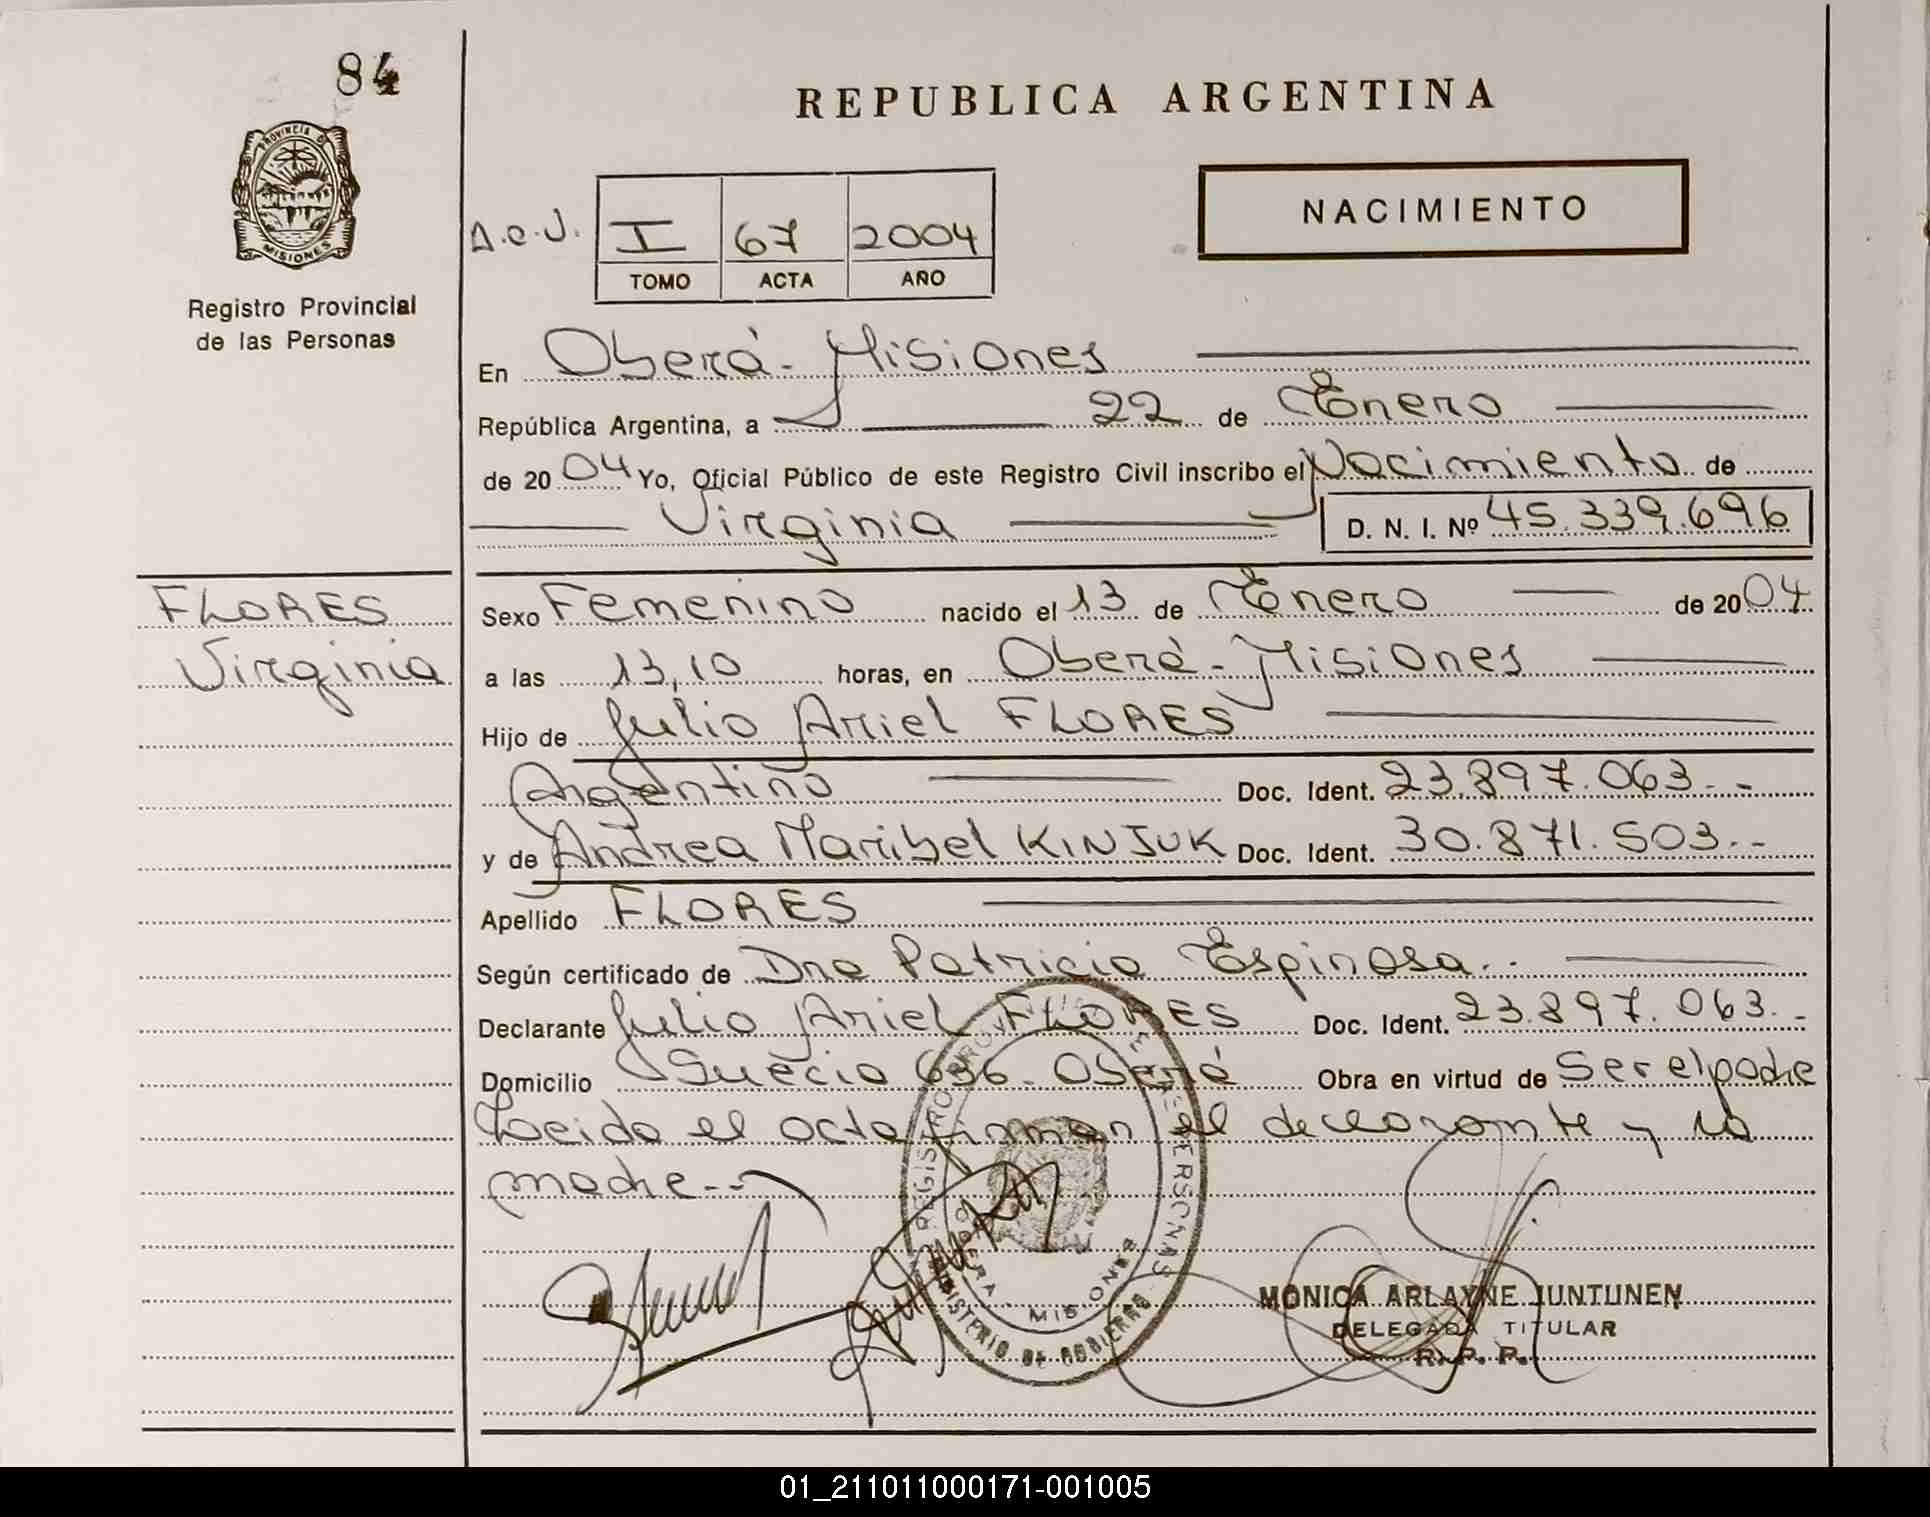 84
REPUBLICA ARGENTINA
PROVINCIA DE
MISIONES
Registro Provincial
de las Personas
NACIMIENTO
D.e.J. I 67 2004
TOMO ACTA AÑO
En Oberá - Misiones
República Argentina, a 22 de Enero
de 2004 Yo, Oficial Público de este Registro Civil inscribo el Nacimiento de
Virginia D. N. I. Nº 45.339.696
FLORES
Virginia
Sexo Femenino nacido el 13 de Enero de 2004
a las 13,10 horas, en Oberá - Misiones
Hijo de Julio Ariel FLORES
Argentino Doc. Ident. 23.897.063.-
y de Andrea Maribel KINJUK Doc. Ident. 30.871.503.-
Apellido FLORES
Según certificado de Dra Patricia Espinosa.-
Declarante Julio Ariel FLORES Doc. Ident. 23.897.063.-
Domicilio Suecia 636. Oberá Obra en virtud de Ser el padre
Leida el acta firman el declarante y la
madre.-
OBERA - MISIONES
MINISTERIO DE GOBIERNO
MONICA ARLAYNE JUNTUNEN
DELEGADA TITULAR
R. P. P.
01_211011000171-001005